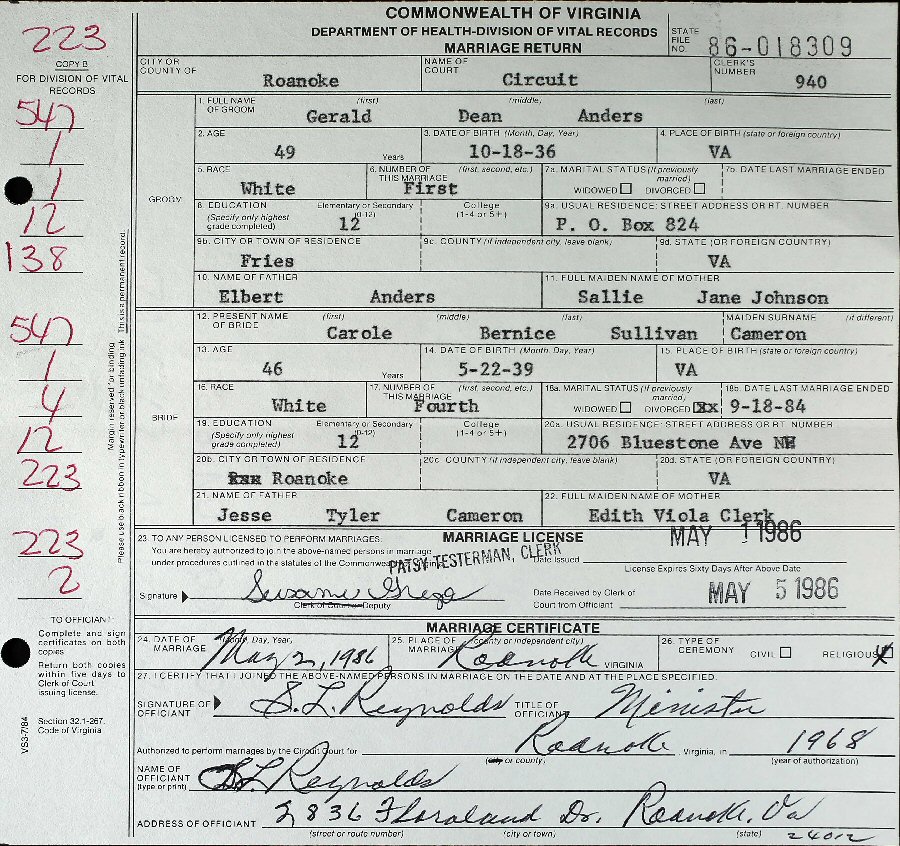 COMMONWEALTH OF VIRGINIA
DEPARTMENT OF HEALTH-DIVISION OF VITAL RECORDS
MARRIAGE RETURN
STATE FILE NO. 86-018309
223
COPY B
FOR DIVISION OF VITAL RECORDS
CITY OR COUNTY OF Roanoke
NAME OF COURT Circuit
CLERK'S NUMBER 940
547
1
1
12
138
GROOM
1. FULL NAME OF GROOM (first) (middle) (last)
Gerald Dean Anders
2. AGE 49 Years
3. DATE OF BIRTH (Month, Day, Year) 10-18-36
4. PLACE OF BIRTH (state or foreign country) VA
5. RACE White
6. NUMBER OF THIS MARRIAGE (first, second, etc.) First
7a. MARITAL STATUS (If previously married) WIDOWED DIVORCED
7b. DATE LAST MARRIAGE ENDED
8. EDUCATION (Specify only highest grade completed) Elementary or Secondary (0-12) 12 College (1-4 or 5+)
9a. USUAL RESIDENCE: STREET ADDRESS OR RT. NUMBER P. O. Box 824
9b. CITY OR TOWN OF RESIDENCE Fries
9c. COUNTY (if independent city, leave blank)
9d. STATE (OR FOREIGN COUNTRY) VA
10. NAME OF FATHER Elbert Anders
11. FULL MAIDEN NAME OF MOTHER Sallie Jane Johnson
547
1
4
12
223
Margin reserved for binding.
This is a permanent record.
Please use black ribbon in typewriter or black unfading ink
BRIDE
12. PRESENT NAME OF BRIDE (first) (middle) (last) MAIDEN SURNAME (if different)
Carole Bernice Sullivan Cameron
13. AGE 46 Years
14. DATE OF BIRTH (Month, Day, Year) 5-22-39
15. PLACE OF BIRTH (state or foreign country) VA
16. RACE White
17. NUMBER OF THIS MARRIAGE (first, second, etc.) Fourth
18a. MARITAL STATUS (If previously married) WIDOWED DIVORCED Xx
18b. DATE LAST MARRIAGE ENDED 9-18-84
19. EDUCATION (Specify only highest grade completed) Elementary or Secondary (0-12) 12 College (1-4 or 5+)
20a. USUAL RESIDENCE: STREET ADDRESS OR RT. NUMBER 2706 Bluestone Ave NE
20b. CITY OR TOWN OF RESIDENCE Roanoke
20c. COUNTY (if independent city, leave blank)
20d. STATE (OR FOREIGN COUNTRY) VA
21. NAME OF FATHER Jesse Tyler Cameron
22. FULL MAIDEN NAME OF MOTHER Edith Viola Clerk
223
2
23. TO ANY PERSON LICENSED TO PERFORM MARRIAGES: MARRIAGE LICENSE
You are hereby authorized to join the above-named persons in marriage
under procedures outlined in the statutes of the Commonwealth of Virginia.
PATSY TESTERMAN, CLERK
Date Issued MAY 1 1986
License Expires Sixty Days After Above Date
Signature
Clerk of Court or Deputy
Date Received by Clerk of Court from Officiant MAY 5 1986
TO OFFICIANT:
Complete and sign certificates on both copies
Return both copies within five days to Clerk of Court issuing license.
Section 32.1-267. Code of Virginia
VS3-7/84
MARRIAGE CERTIFICATE
24. DATE OF MARRIAGE (Month, Day, Year) May 2, 1986
25. PLACE OF MARRIAGE (county or independent city) Roanoke VIRGINIA
26. TYPE OF CEREMONY CIVIL RELIGIOUS X
27. I CERTIFY THAT I JOINED THE ABOVE-NAMED PERSONS IN MARRIAGE ON THE DATE AND AT THE PLACE SPECIFIED.
SIGNATURE OF OFFICIANT S. L. Reynolds
TITLE OF OFFICIANT Minister
Authorized to perform marriages by the Circuit Court for Roanoke Virginia, in 1968
(city or county) (year of authorization)
NAME OF OFFICIANT (type or print) S L Reynolds
ADDRESS OF OFFICIANT 2836 Floraland Dr. Roanoke, Va
(street or route number) (city or town) (state) 24012